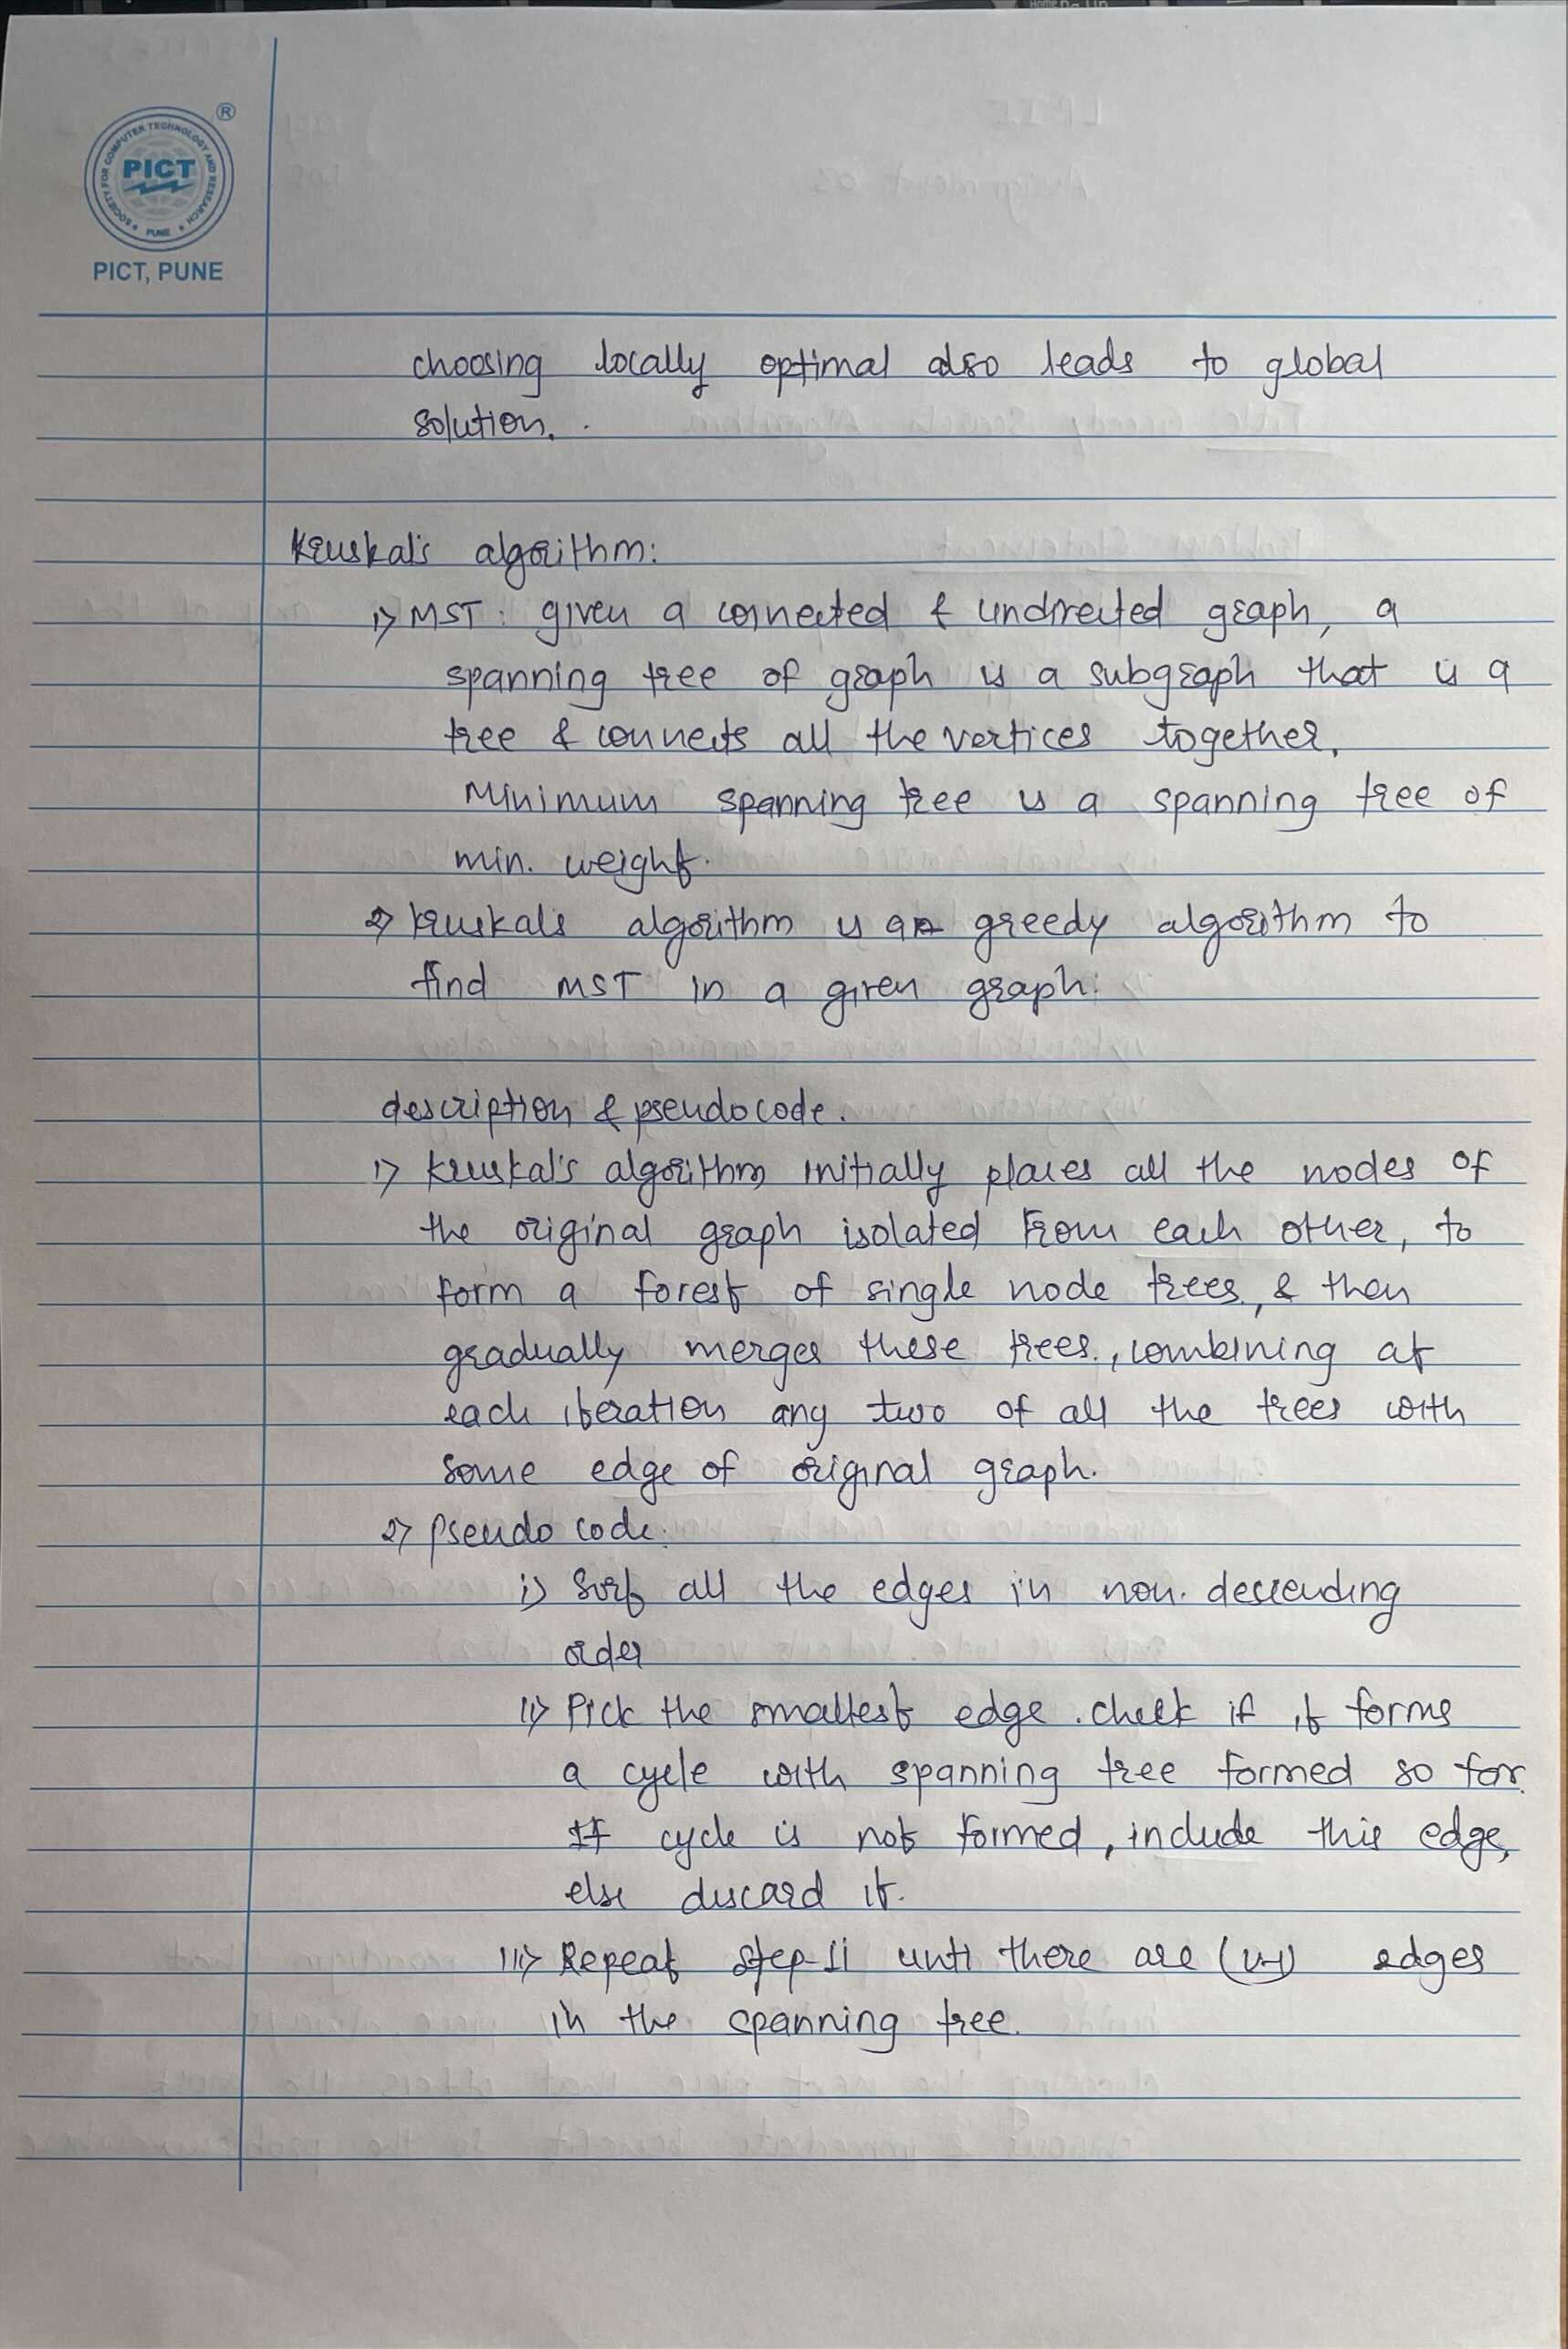 Home PgUp
®
SOCIETY FOR COMPUTER TECHNOLOGY AND RESEARCH
PICT
PUNE
PICT, PUNE
choosing locally optimal also leads to global
solution.
Kruskal's algorithm:
1> MST: given a connected & undirected graph, a
spanning tree of graph is a subgraph that is a
tree & connects all the vertices together.
Minimum spanning tree is a spanning tree of
min. weight.
2> kruskal's algorithm is a greedy algorithm to
find MST in a given graph.
description & pseudocode.
1> kruskal's algorithm initially places all the nodes of
the original graph isolated from each other, to
form a forest of single node trees, & then
gradually merges these trees, combining at
each iteration any two of all the trees with
some edge of original graph.
2> Pseudo code:
i> Sort all the edges in non-descending
order
ii> Pick the smallest edge. check if it forms
a cycle with spanning tree formed so far.
If cycle is not formed, include this edge,
else discard it.
iii> Repeat step-ii until there are (v-1) edges
in the spanning tree.